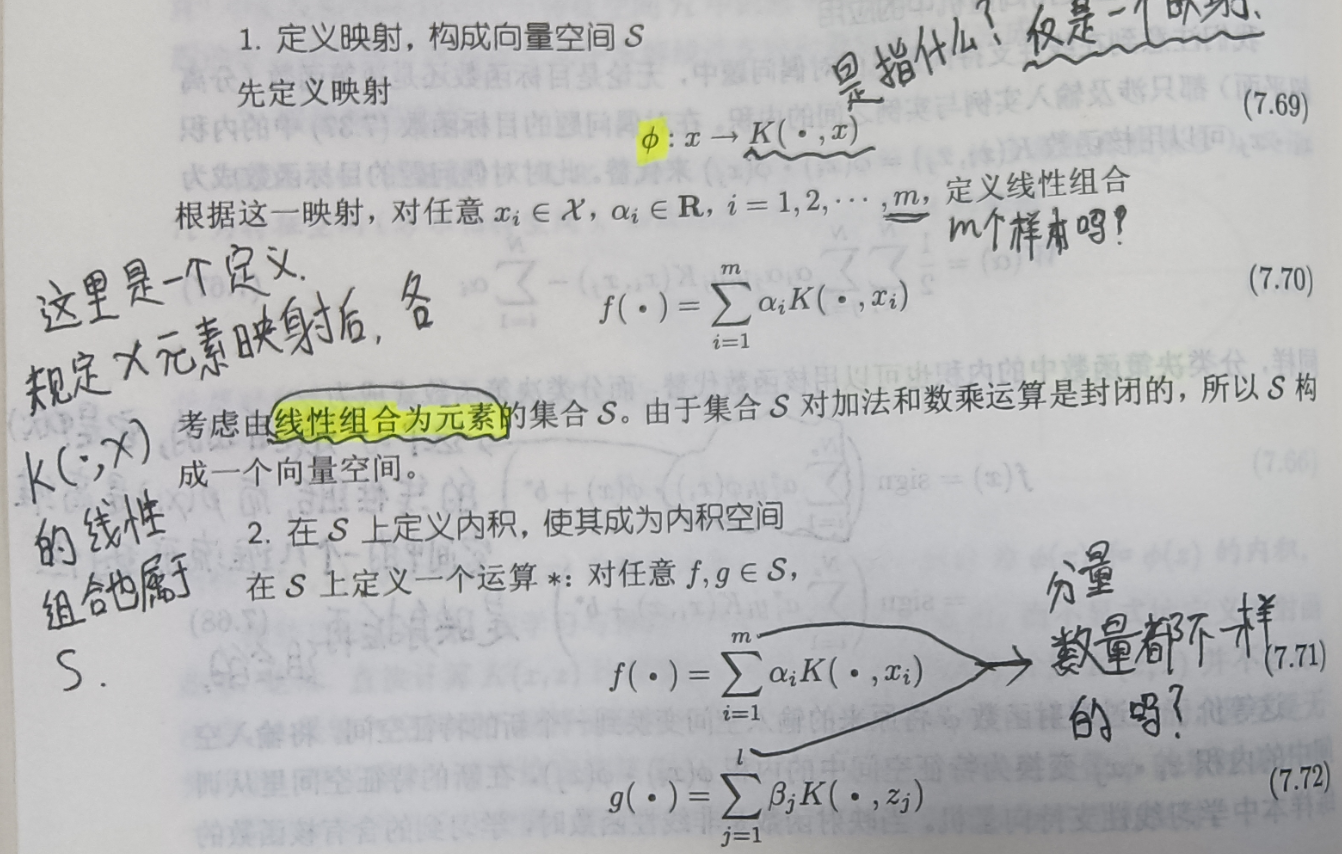 1. 定义映射，构成向量空间 S
是指什么？仅是一个映射.
先定义映射
ϕ : x → K( · , x) (7.69)
根据这一映射，对任意 xᵢ ∈ 𝒳，αᵢ ∈ R，i = 1, 2, ··· , m，定义线性组合
m个样本吗？
这里是一个定义.
规定 X 元素映射后，各
K(·, x)
的线性
组合也属于
S.
f( · ) = ∑_{i=1}^{m} αᵢK( · , xᵢ) (7.70)
考虑由线性组合为元素的集合 S。由于集合 S 对加法和数乘运算是封闭的，所以 S 构
成一个向量空间。
2. 在 S 上定义内积，使其成为内积空间
在 S 上定义一个运算 *：对任意 f, g ∈ S，
f( · ) = ∑_{i=1}^{m} αᵢK( · , xᵢ) (7.71)
分量
数量都不一样
的吗？
g( · ) = ∑_{j=1}^{l} βⱼK( · , zⱼ) (7.72)